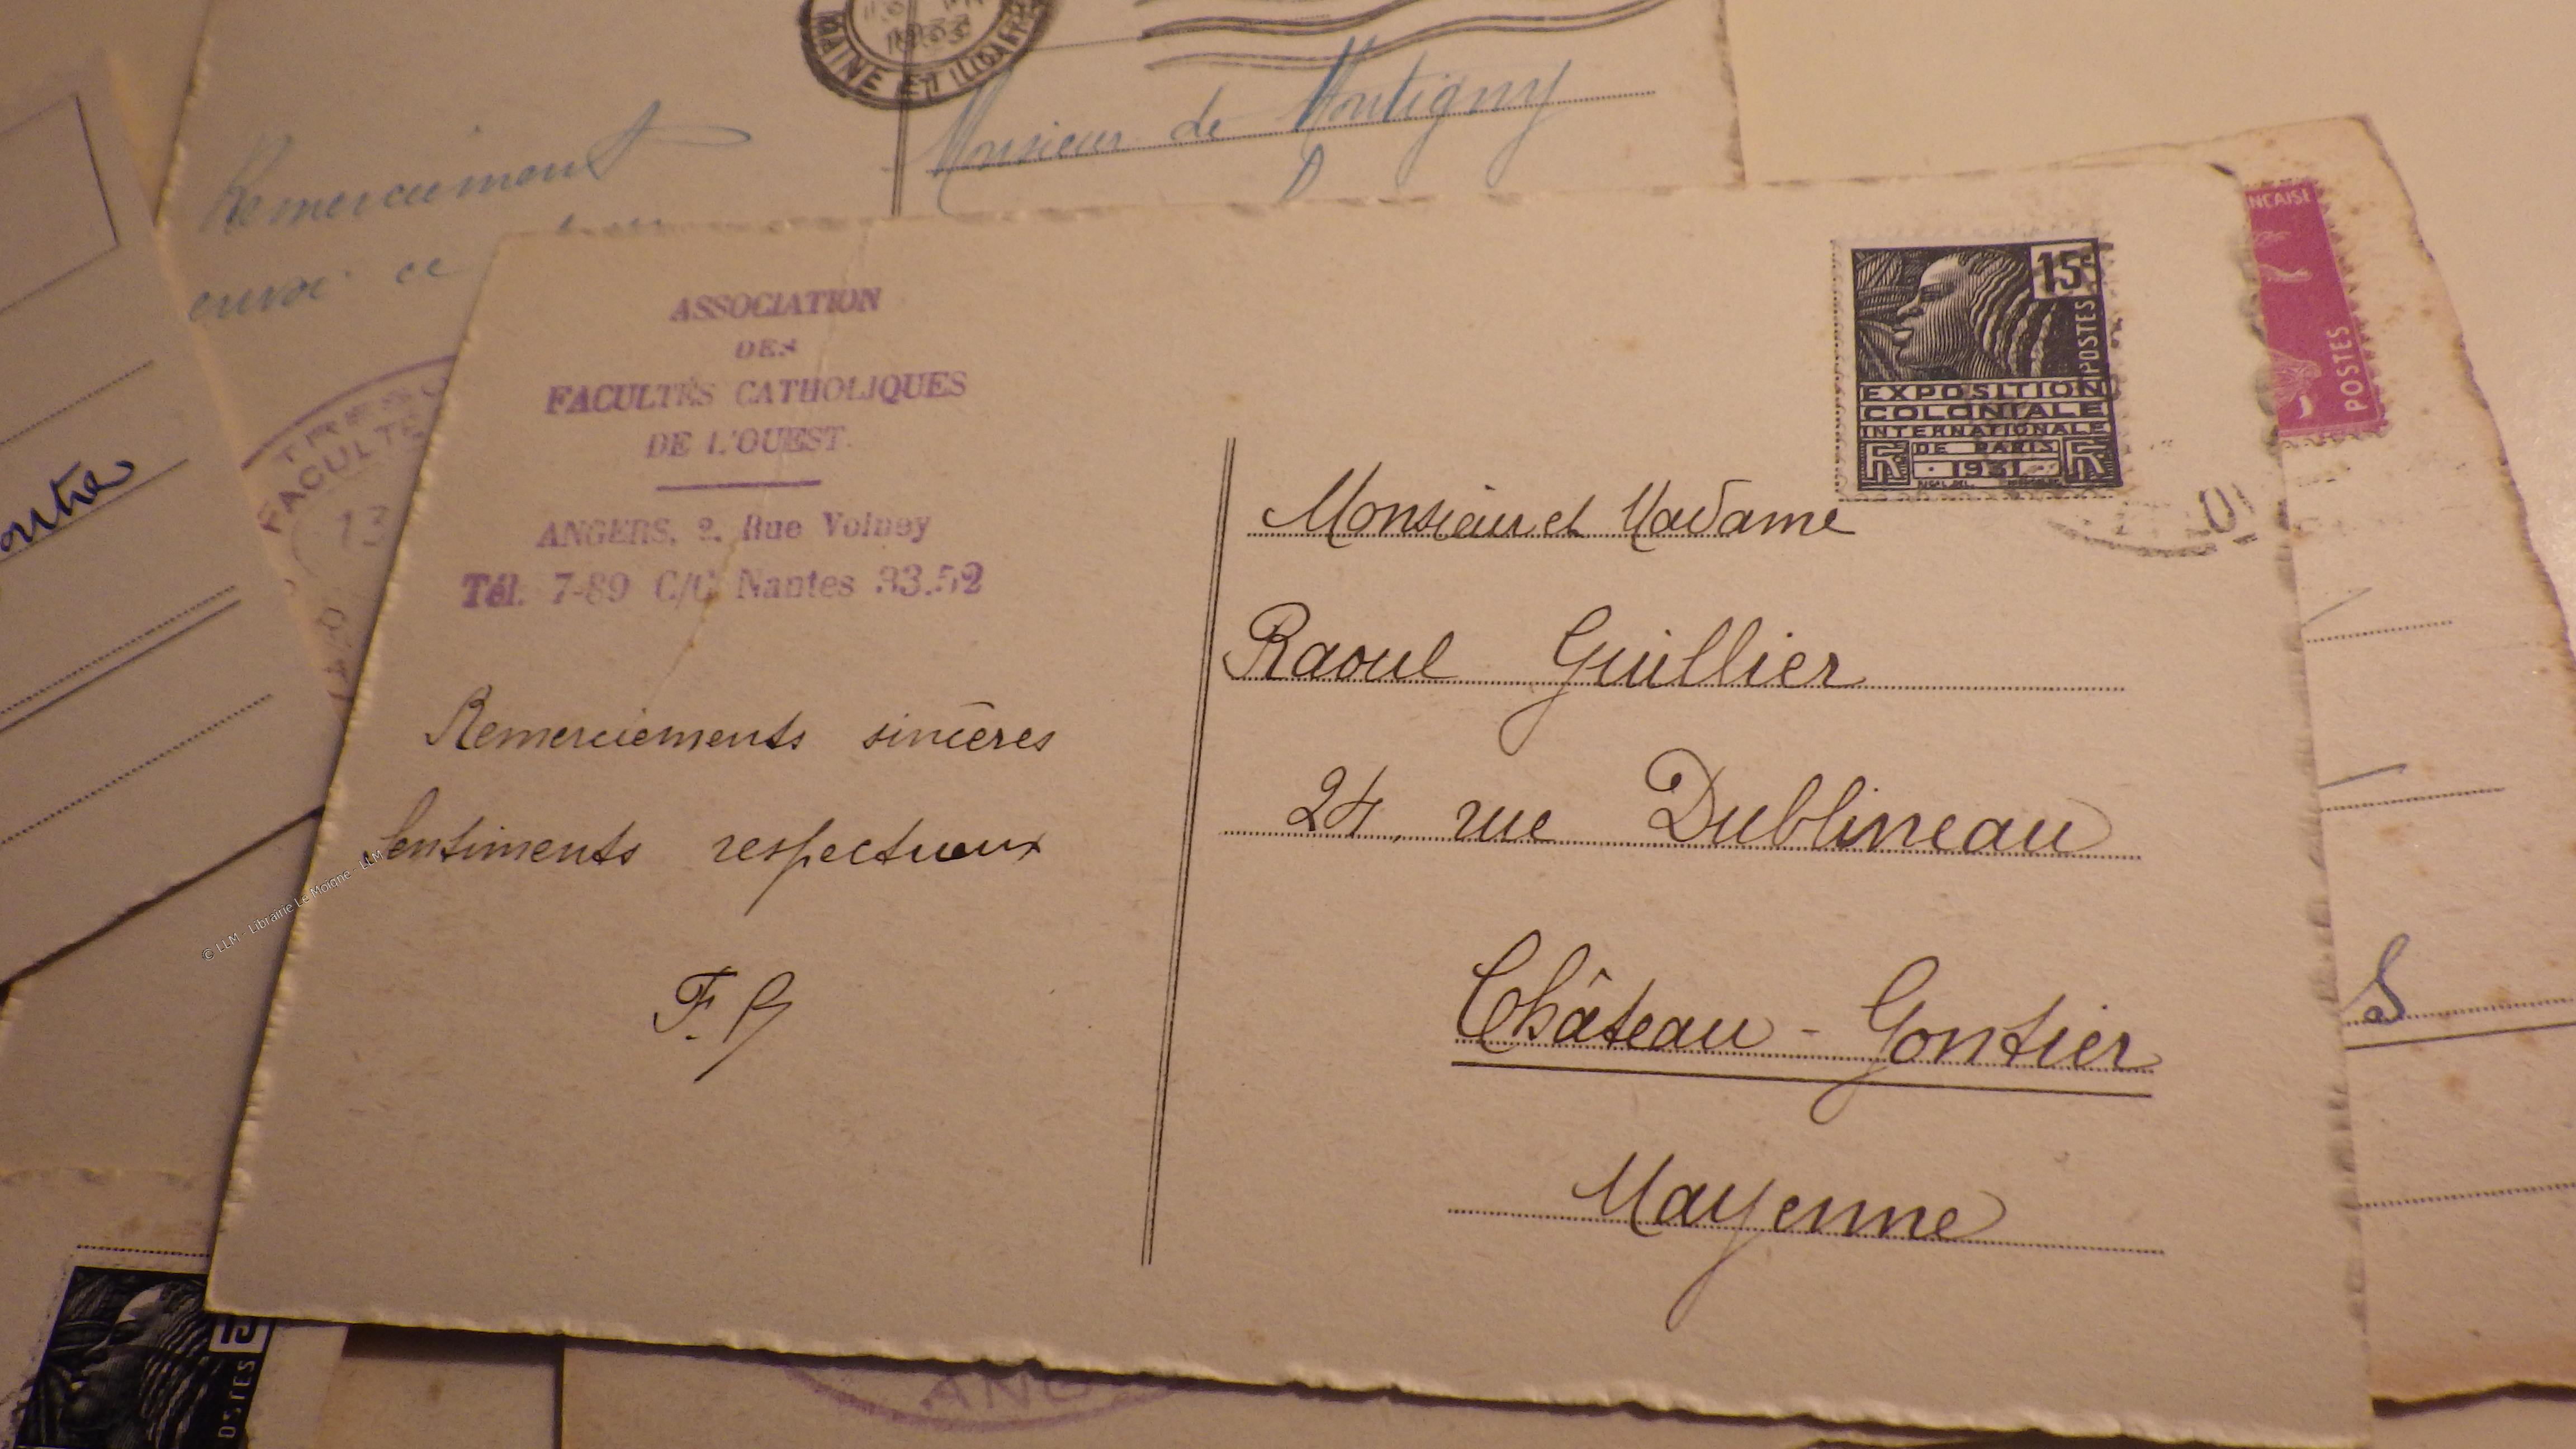 1933
MAINE ET LOIRE
Monsieur de Montigny
Remerciement
envoi ce
contre
TRESO
FACULTE
13
ASSOCIATION
DES
FACULTÉS CATHOLIQUES
DE L'OUEST.
ANGERS, 2, Rue Volney
Tél. 7-89 C/C Nantes 33.52
Remerciements sincères
Sentiments respectueux
15c
POSTES
EXPOSITION
COLONIALE
INTERNATIONALE
DE PARIS
RF
1931
RF
Monsieur et Madame
Raoul Guillier
24, rue Dublineau
Château-Gontier
Mayenne
NÇAISE
POSTES
S
15
OSTES
ANG
© LLM - Librairie Le Moigne - LLM